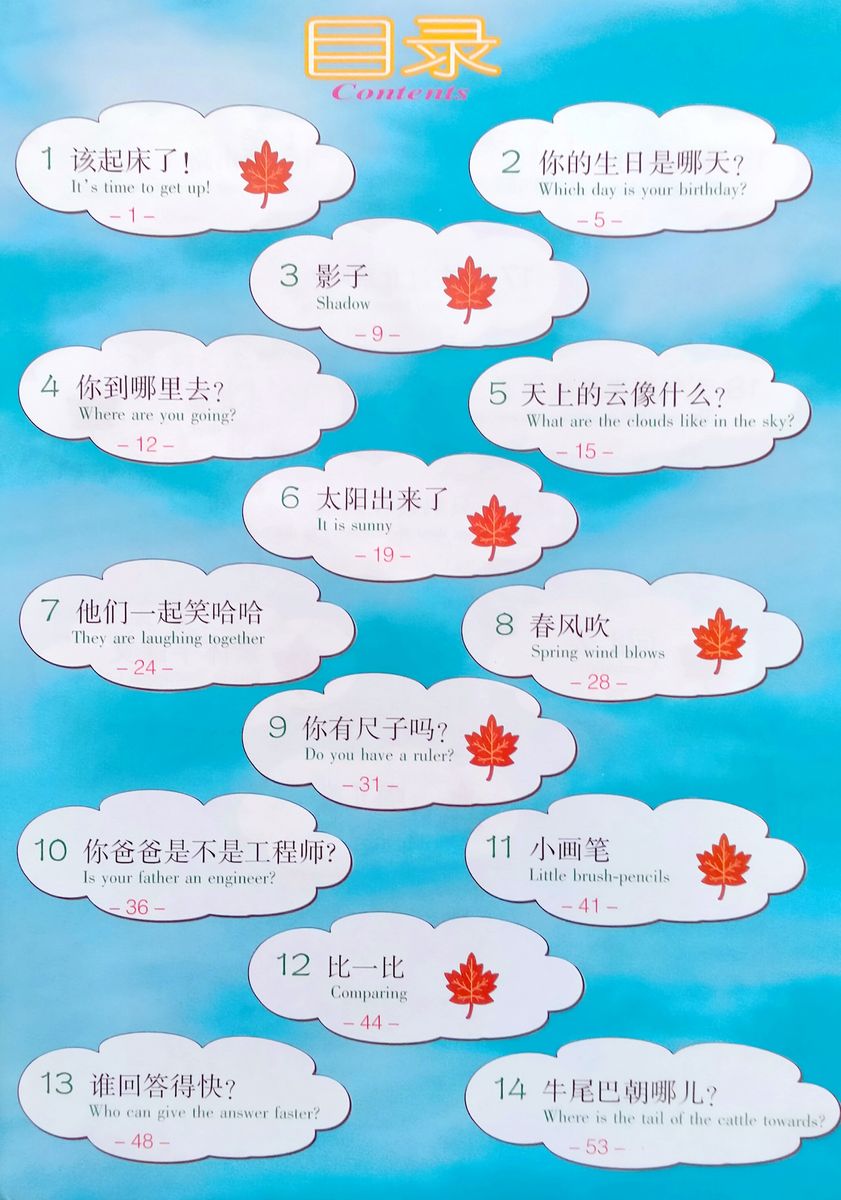 目录
Contents
1 该起床了!
It's time to get up!
– 1 –
2 你的生日是哪天?
Which day is your birthday?
– 5 –
3 影子
Shadow
– 9 –
4 你到哪里去?
Where are you going?
– 12 –
5 天上的云像什么?
What are the clouds like in the sky?
– 15 –
6 太阳出来了
It is sunny
– 19 –
7 他们一起笑哈哈
They are laughing together
– 24 –
8 春风吹
Spring wind blows
– 28 –
9 你有尺子吗?
Do you have a ruler?
– 31 –
10 你爸爸是不是工程师?
Is your father an engineer?
– 36 –
11 小画笔
Little brush-pencils
– 41 –
12 比一比
Comparing
– 44 –
13 谁回答得快?
Who can give the answer faster?
– 48 –
14 牛尾巴朝哪儿?
Where is the tail of the cattle towards?
– 53 –